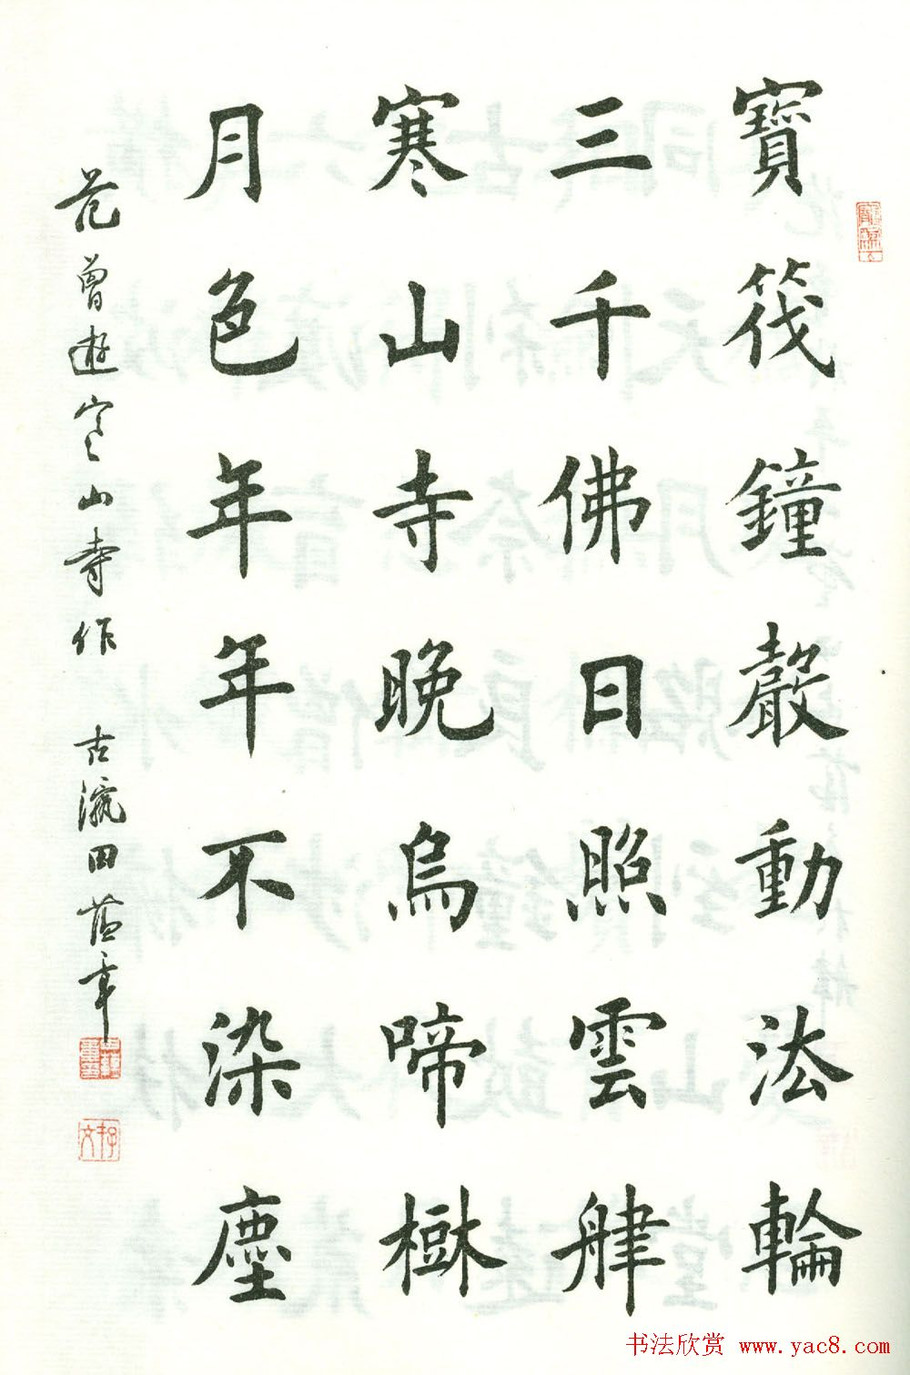 寶筏鐘聲動法輪
三千佛日照雲肆
寒山寺晚烏啼樹
月色年年不染塵
范曾遊寒山寺作 古瀛田蘊章
书法欣赏 www.yac8.com